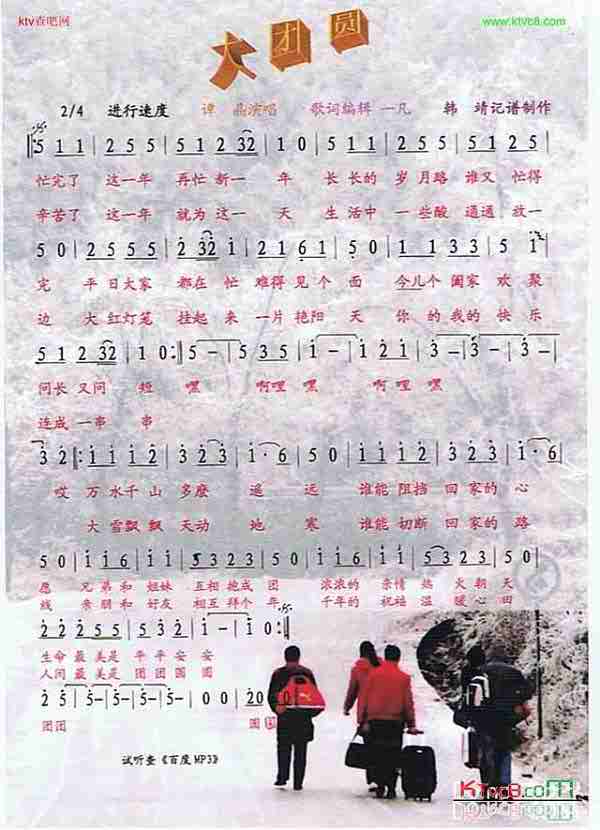 ktv查吧网
www.ktvc8.com
大团圆
2/4 进行速度 谭 晶演唱 歌词编辑 一凡 韩 靖记谱制作
5 1 1 | 2 5 5 | 5 1 2 32 | 1 0 | 5 1 1 | 2 5 5 | 5 1 2 3 2 | 5 2 5 |
忙完了 这一年 再忙新一 年 长长的 岁月路 谁又 忙得
辛苦了 这一年 就为这一 天 生活中 一些酸 通通 放一
5 0 | 2 5 5 5 | 2 32 1 | 2 1 6 1 | 5 0 | 1 1 3 3 | 5 1 |
完 平日大家 都在忙 难得见个面 今儿个 阖家 欢聚
边 大红灯笼 挂起来 一片艳阳 天 你的我的 快乐
5 1 2 2 32 | 1 0 :| 5 - | 5 - | 5 3 5 | 1 - | 1 - | 1 2 1 | 3 - | 3 - |
问长 又问 短 嘿 啊哩 嘿 啊 哩 嘿
连成 一串 串
3 2 |: 1 1 1 2 | 3 2 3 | 1 · 6 | 5 0 | 1 1 1 2 | 3 2 3 | 1 · 6 |
哎 万水千山 多么 遥 远 谁能 阻挡 回家的 心
大雪飘飘 天动 地 寒 谁能 切断 回家的 路
5 0 | 1 1 6 | 1 1 6 | 5 3 2 3 | 5 0 | 1 1 6 | 1 1 | 5 3 2 3 |
愿 兄弟和 姐妹 互相 抱成 团 浓浓的 亲情 热 火朝 天
线 亲朋和 好友 相互 拜个 年 千年的 祝福 温 暖心 田
2 2 2 5 5 | 5 5 3 2 | 1 - | 1 0 :|
生命 最美是 平平安 安
人间 最美是 团团圆 圆
2 5 | 5 - | 5 - | 5 - | 5 - | 1 - | 1 - | 1 - | 0 0 | 0
团团 圆
试听查《百度MP3》
KTvc8.com